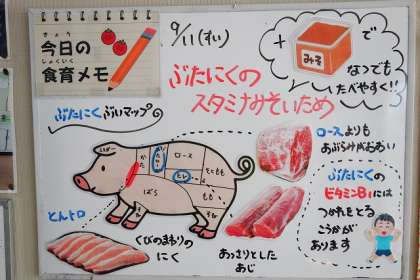 きょう
今日の
しょくいく
食育メモ
9/11(すい)
みそ
で
なつでも
たべやすく!!
ぶたにくの
スタミナみそいため
ぶたにくぶいマップ♡
かた
ロース
ヒレ
ばら
もも
ロースよりも
あぶらみがおおい
とんトロ
くびのまわりの
にく
あっさりとした
あじ
ぶたにくの
ビタミンB1には
つかれをとる
こうかが
あります